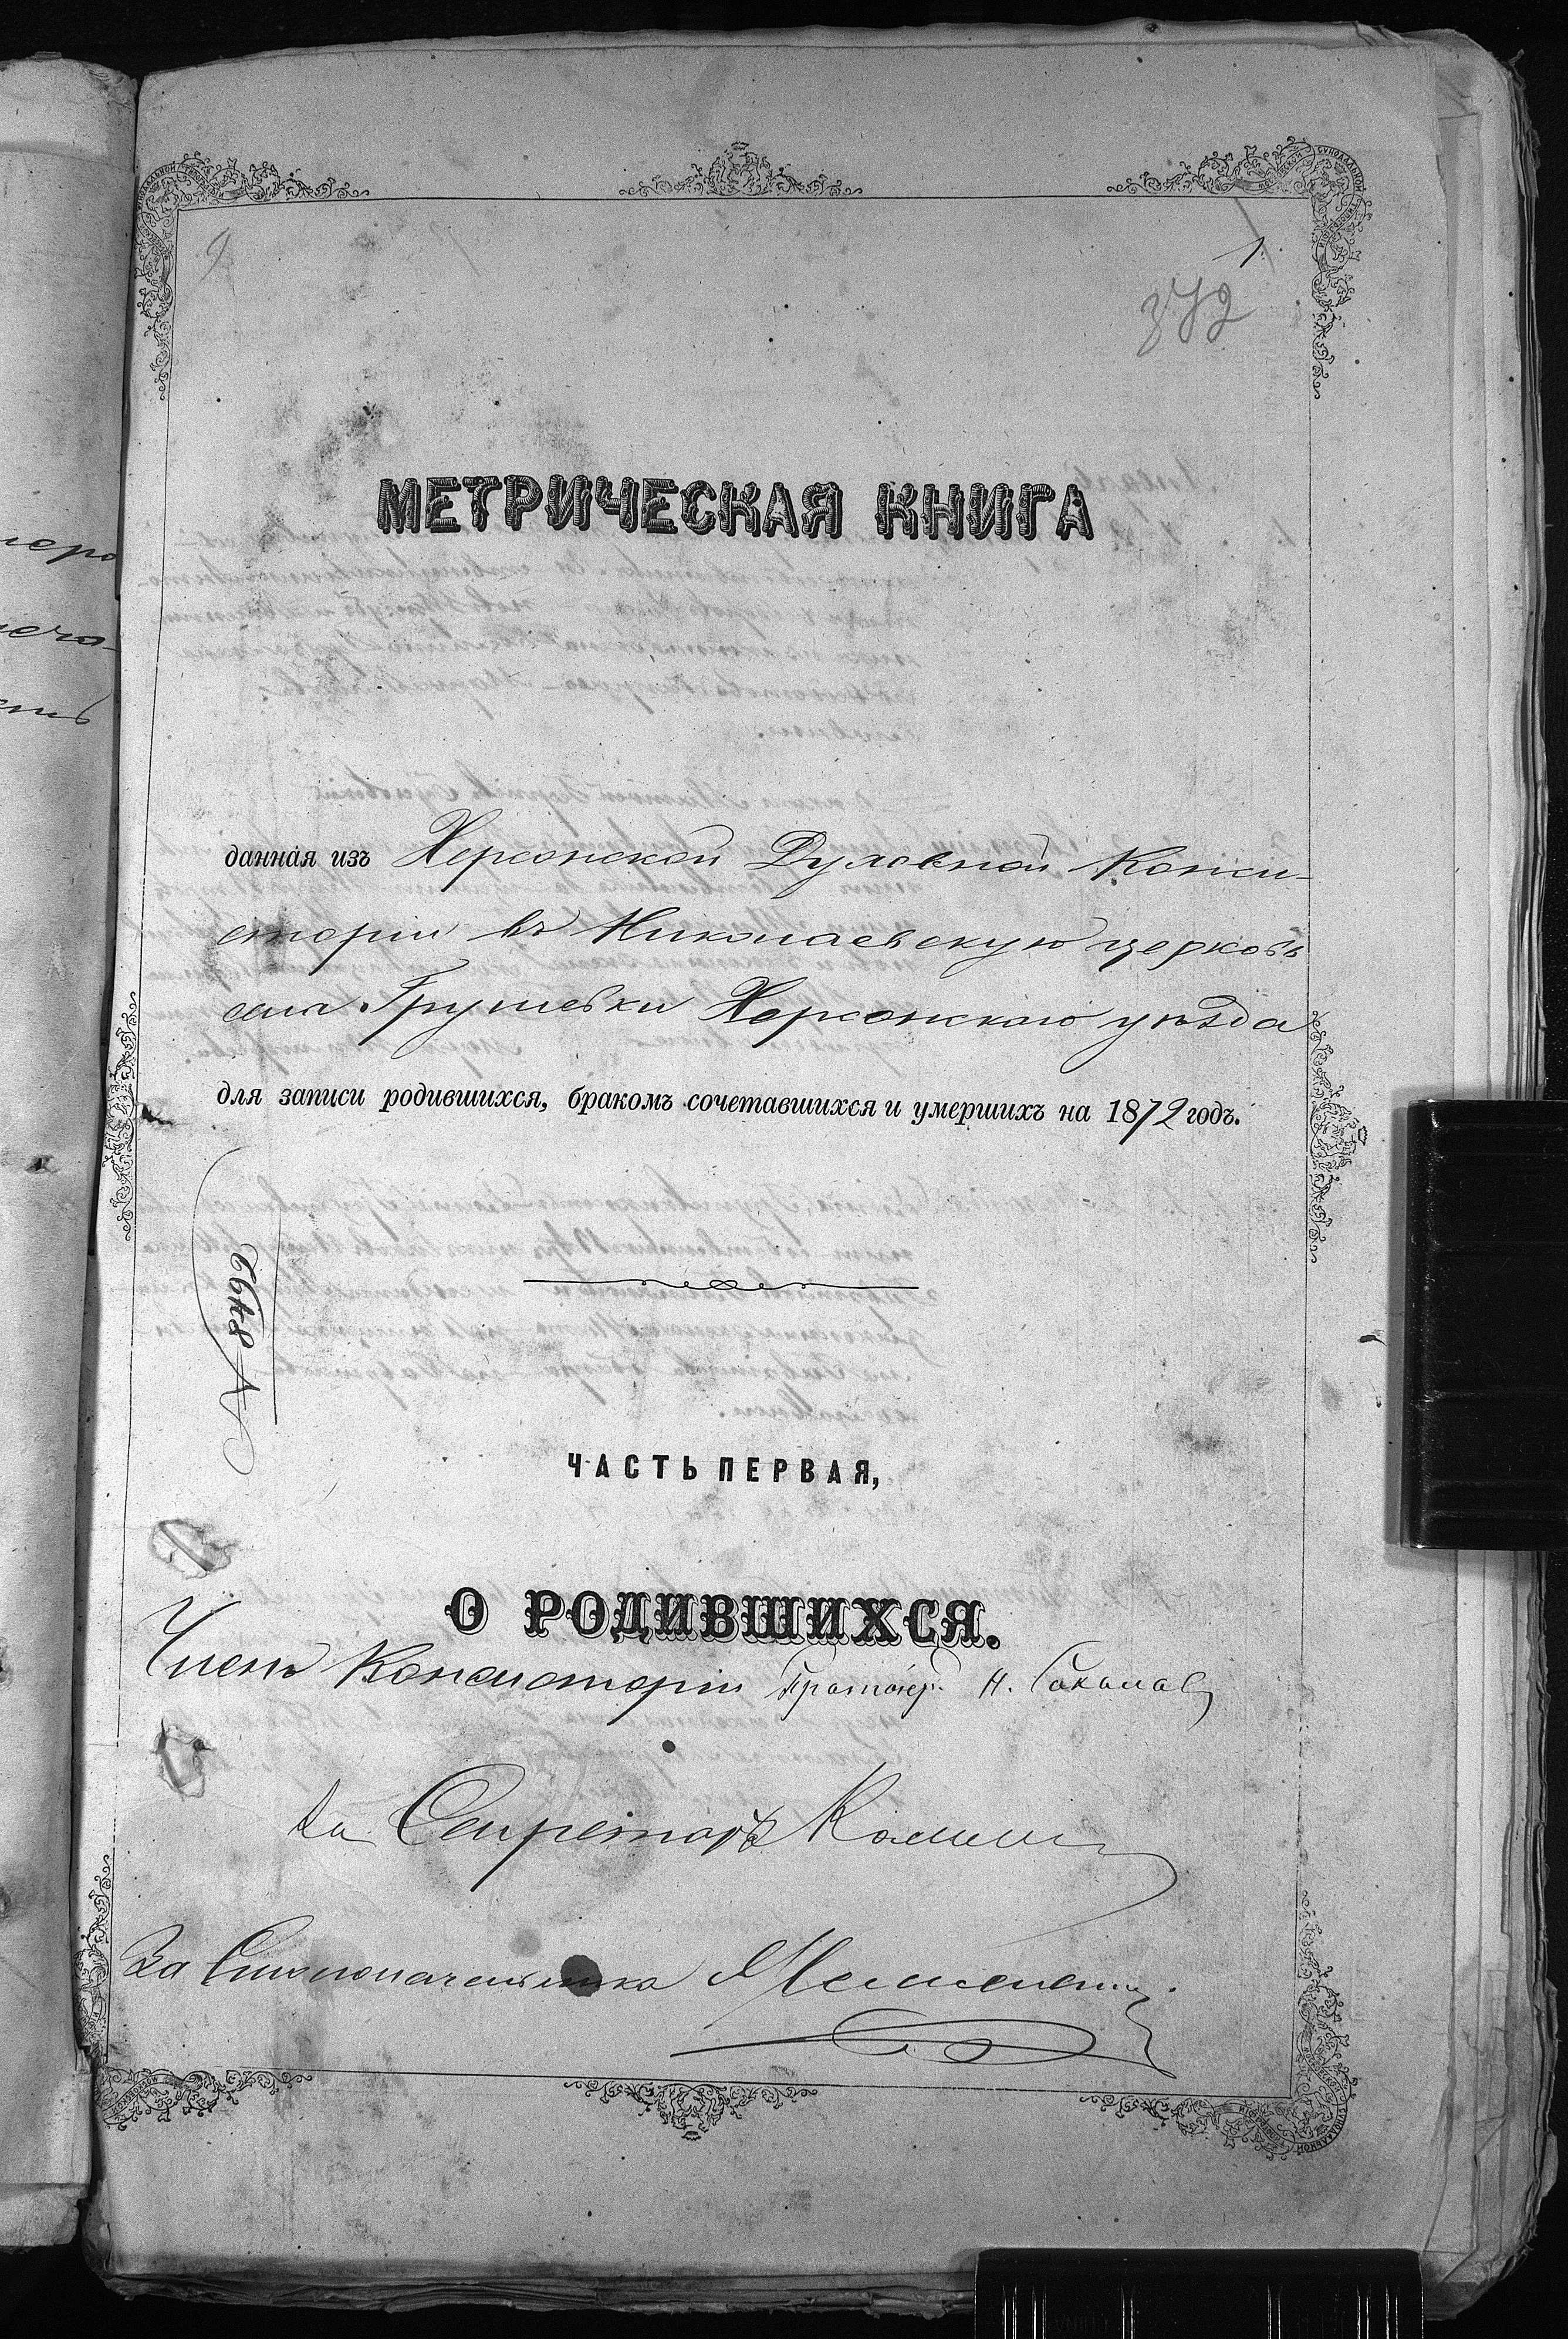 1.
372
МЕТРИЧЕСКАЯ КНИГА
данная изъ Херсонской Духовной Конси-
сторіи въ Николаевскую церковь
села Грушевки Херсонскаго уѣзда
для записи родившихся, бракомъ сочетавшихся и умершихъ на 1872 годъ.
№ 8492
ЧАСТЬ ПЕРВАЯ,
О РОДИВШИХСЯ.
Членъ Консисторіи Протоіер. Н. Соколовъ
За Секретаря
За Столоначальника